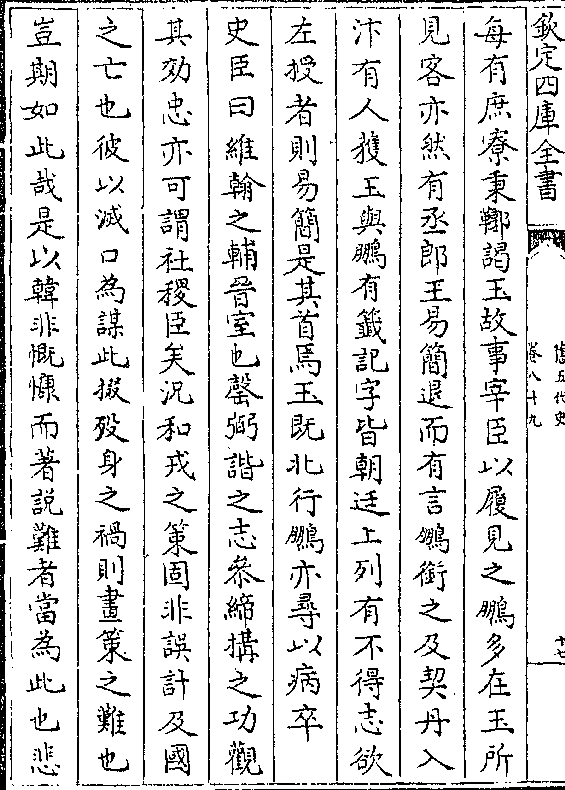 欽定四庫全書
舊五代史
卷八十九
十七
每有庶寮秉鞹謁玉故事宰臣以履見之鵬多在玉所
見客亦然有丞郎王易簡退而有言鵬銜之及契丹入
汴有人獲玉與鵬有籤記字皆朝廷上列有不得志欲
左授者則易簡是其首焉玉既北行鵬亦尋以病卒
史臣曰維翰之輔晉室也罄弼諧之志叅締搆之功觀
其効忠亦可謂社稷臣矣況和戎之策固非誤計及國
之亡也彼以滅口為謀此掇殁身之禍則畫策之難也
豈期如此哉是以韓非慨慷而著說難者當為此也悲